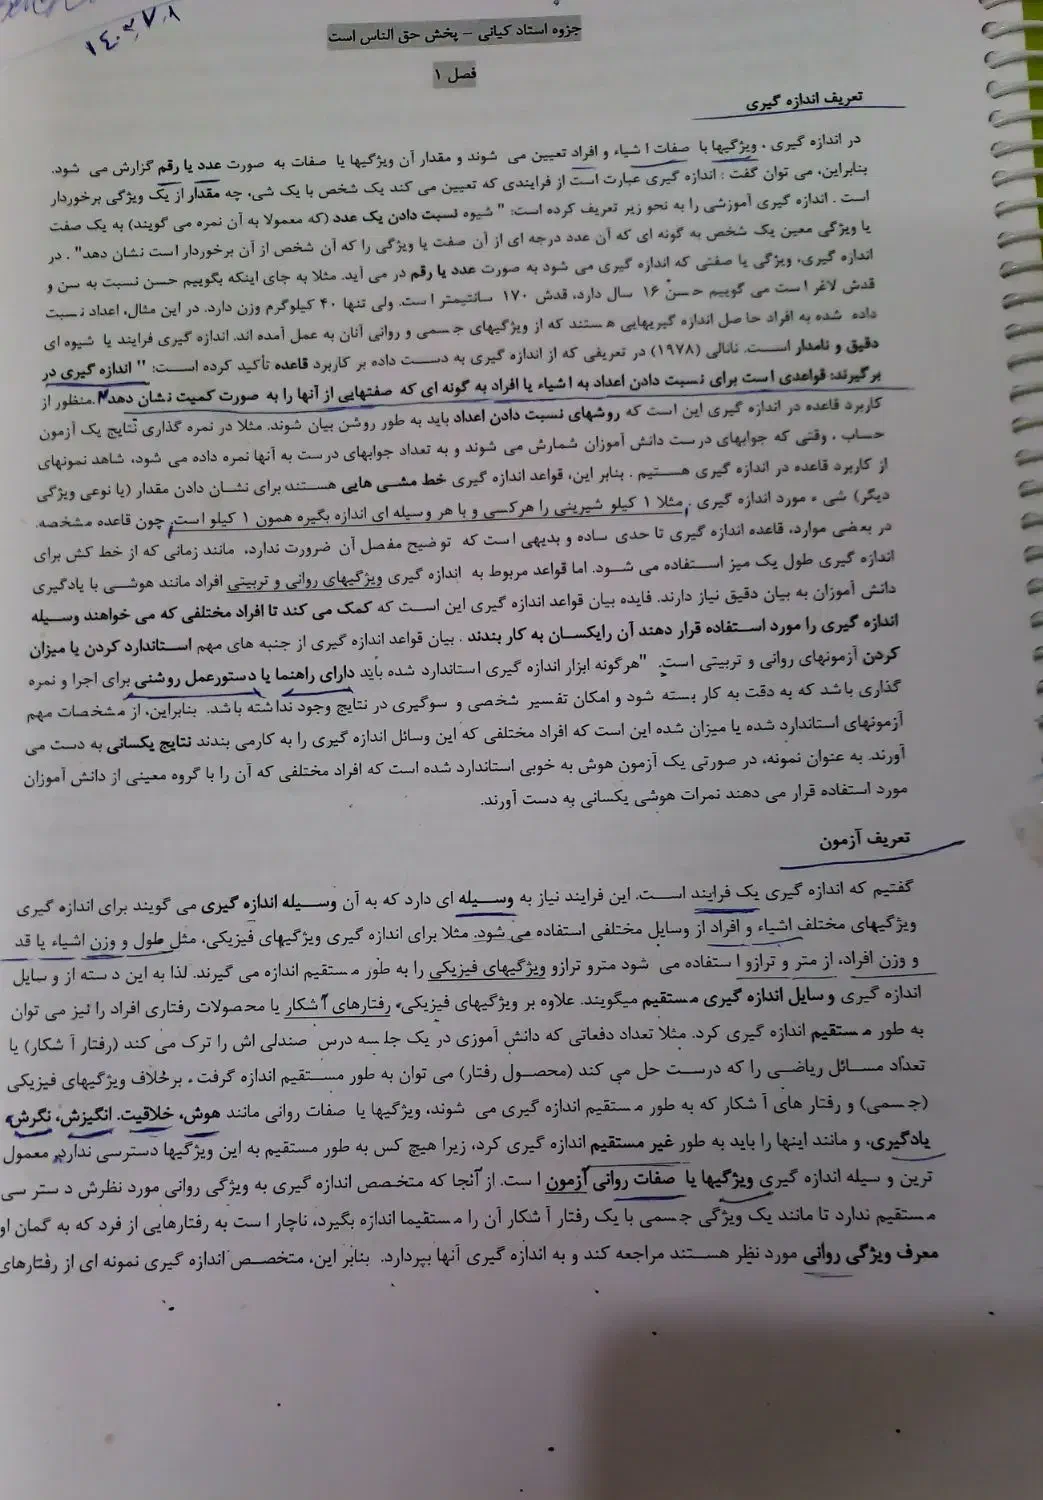 ۱۴۰۳،۷،۸
جزوه استاد کیانی – پخش حق الناس است
فصل ۱
تعریف اندازه گیری
در اندازه گیری ، ویژگیها با صفات اشیاء و افراد تعیین می شوند و مقدار آن ویژگیها یا صفات به صورت عدد یا رقم گزارش می شود.
بنابراین، می توان گفت : اندازه گیری عبارت است از فرایندی که تعیین می کند یک شخص با یک شی، چه مقدار از یک ویژگی برخوردار
است . اندازه گیری آموزشی را به نحو زیر تعریف کرده است: " شیوه نسبت دادن یک عدد (که معمولا به آن نمره می گویند) به یک صفت
یا ویژگی معین یک شخص به گونه ای که آن عدد درجه ای از آن صفت یا ویژگی را که آن شخص از آن برخوردار است نشان دهد" . در
اندازه گیری، ویژگی یا صفتی که اندازه گیری می شود به صورت عدد یا رقم در می آید. مثلا به جای اینکه بگوییم حسن نسبت به سن و
قدش لاغر است می گوییم حسن ۱۶ سال دارد، قدش ۱۷۰ سانتیمتر است. ولی تنها ۴۰ کیلوگرم وزن دارد. در این مثال، اعداد نسبت
داده شده به افراد حاصل اندازه گیریهایی هستند که از ویژگیهای جسمی و روانی آنان به عمل آمده اند. اندازه گیری فرایند یا شیوه ای
دقیق و نامدار است. نانالی (۱۹۷۸) در تعریفی که از اندازه گیری به دست داده بر کاربرد قاعده تأکید کرده است: " اندازه گیری در
برگیرند: قواعدی است برای نسبت دادن اعداد به اشیاء یا افراد به گونه ای که صفتهایی از آنها را به صورت کمیت نشان دهد".منظور از
کاربرد قاعده در اندازه گیری این است که روشهای نسبت دادن اعداد باید به طور روشن بیان شوند. مثلا در نمره گذاری نتایج یک آزمون
حساب ، وقتی که جوابهای درست دانش آموزان شمارش می شوند و به تعداد جوابهای درست به آنها نمره داده می شود، شاهد نمونهای
از کاربرد قاعده در اندازه گیری هستیم . بنابر این، قواعد اندازه گیری خط مشی هایی هستند برای نشان دادن مقدار (یا نوعی ویژگی
دیگر) شی ء مورد اندازه گیری . مثلا ۱ کیلو شیرینی را هرکسی و با هر وسیله ای اندازه بگیره همون ۱ کیلو است. چون قاعده مشخصه.
در بعضی موارد، قاعده اندازه گیری تا حدی ساده و بدیهی است که توضیح مفصل آن ضرورت ندارد، مانند زمانی که از خط کش برای
اندازه گیری طول یک میز استفاده می شود. اما قواعد مربوط به اندازه گیری ویژگیهای روانی و تربیتی افراد مانند هوشی با یادگیری
دانش آموزان به بیان دقیق نیاز دارند. فایده بیان قواعد اندازه گیری این است که کمک می کند تا افراد مختلفی که می خواهند وسیله
اندازه گیری را مورد استفاده قرار دهند آن رایکسان به کار بندند . بیان قواعد اندازه گیری از جنبه های مهم استاندارد کردن یا میزان
کردن آزمونهای روانی و تربیتی است. "هرگونه ابزار اندازه گیری استاندارد شده باید دارای راهنما یا دستورعمل روشنی برای اجرا و نمره
گذاری باشد که به دقت به کار بسته شود و امکان تفسیر شخصی و سوگیری در نتایج وجود نداشته باشد. بنابراین، از مشخصات مهم
آزمونهای استاندارد شده یا میزان شده این است که افراد مختلفی که این وسائل اندازه گیری را به کارمی بندند نتایج یکسانی به دست می
آورند. به عنوان نمونه، در صورتی یک آزمون هوش به خوبی استاندارد شده است که افراد مختلفی که آن را با گروه معینی از دانش آموزان
مورد استفاده قرار می دهند نمرات هوشی یکسانی به دست آورند.
تعریف آزمون
گفتیم که اندازه گیری یک فرایند است. این فرایند نیاز به وسیله ای دارد که به آن وسیله اندازه گیری می گویند برای اندازه گیری
ویژگیهای مختلف اشیاء و افراد از وسایل مختلفی استفاده می شود. مثلا برای اندازه گیری ویژگیهای فیزیکی، مثل طول و وزن اشیاء یا قد
و وزن افراد، از متر و ترازو استفاده می شود مترو ترازو ویژگیهای فیزیکی را به طور مستقیم اندازه می گیرند. لذا به این دسته از وسایل
اندازه گیری وسایل اندازه گیری مستقیم میگویند. علاوه بر ویژگیهای فیزیکی، رفتارهای آشکار یا محصولات رفتاری افراد را نیز می توان
به طور مستقیم اندازه گیری کرد. مثلا تعداد دفعاتی که دانش آموزی در یک جلسه درس صندلی اش را ترک می کند (رفتار آشکار) یا
تعداد مسائل ریاضی را که درست حل می کند (محصول رفتار) می توان به طور مستقیم اندازه گرفت . برخلاف ویژگیهای فیزیکی
(جسمی) و رفتار های آشکار که به طور مستقیم اندازه گیری می شوند، ویژگیها یا صفات روانی مانند هوش، خلاقیت. انگیزش، نگرش،
یادگیری، و مانند اینها را باید به طور غیر مستقیم اندازه گیری کرد، زیرا هیچ کس به طور مستقیم به این ویژگیها دسترسی ندارد. معمول
ترین وسیله اندازه گیری ویژگیها یا صفات روانی آزمون است. از آنجا که متخصص اندازه گیری به ویژگی روانی مورد نظرش دسترسی
مستقیم ندارد تا مانند یک ویژگی جسمی با یک رفتار آشکار آن را مستقیما اندازه بگیرد، ناچار است به رفتارهایی از فرد که به گمان او
معرف ویژگی روانی مورد نظر هستند مراجعه کند و به اندازه گیری آنها بپردارد. بنابر این، متخصص اندازه گیری نمونه ای از رفتارهای